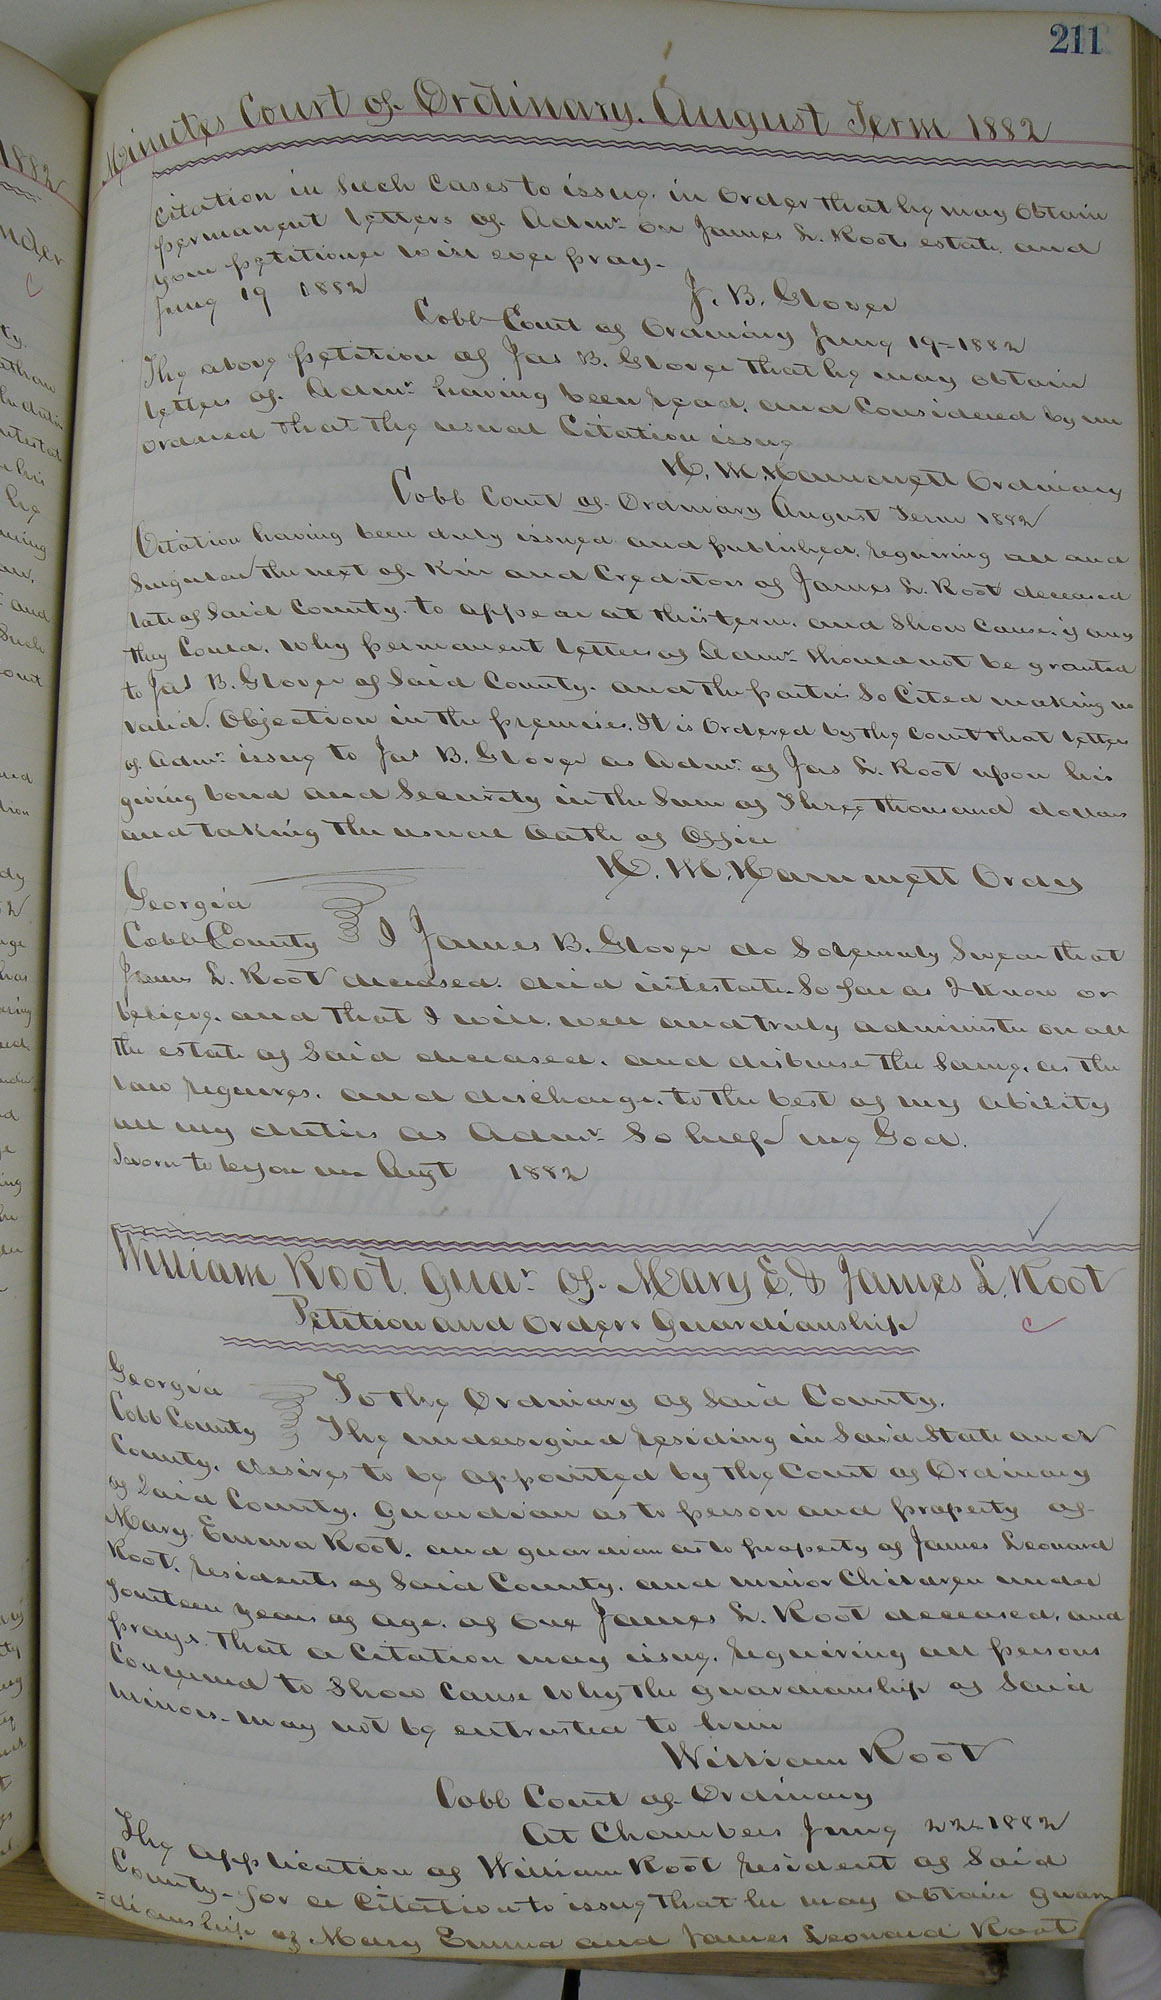 211
Minutes Court of Ordinary. August Term 1882
Citation in such cases to issue. in order that he may obtain
permanent letters of Admr. on James L. Roots estate. and
your petitioner will ever pray.
June 19 1882 J. B. Glover
Cobb Court of Ordinary June 19-1882
The above petition of Jas B. Glover that he may obtain
letters of. Admr. having been read, and considered by me
ordered that the usual Citation issue
H. M. Hammett Ordinary
Cobb Court of Ordinary August Term 1882
Citation having been duly issued and published. requiring all and
Singular the next of Kin and Creditors of James L. Root deceased
late of said County. to appear at this term. and show cause. if any
they Could. why permanent letters of Admr. should not be granted
to Jas B. Glover of said County. and the parties so Cited making no
valid. Objection in the premises. It is ordered by the Court that letters
of. Admr. issue to Jas B. Glover as Admr. of Jas L. Root upon his
giving bond and Security in the sum of Three thousand dollars
and taking the usual Oath of Office
H. M. Hammett Ordy
Georgia
Cobb County I James B. Glover do Solemnly Swear that
James L. Root deceased. died intestate. So far as I know or
believe. and that I will. well and truly administer on all
the estate of said deceased. and disburse the same. as the
law requires. and discharge. to the best of my ability
all my duties as Admr. So help me God.
Sworn to before me Augt 1882
William Root Guar. of. Mary E. & James L. Root
Petition and Orders Guardianship
Georgia To the Ordinary of said County.
Cobb County The undersigned residing in said State and
County. desires to be appointed by the Court of Ordinary
of said County. guardian as to person and property of
Mary. Emma Root. and guardian as to property of James Leonard
Root. residents of said County. and minor children under
fourteen years of age. of one James L. Root deceased. and
prays. that a Citation may issue. requiring all persons
Concerned to show cause why the guardianship of said
minors. may not be entrusted to him
William Root
Cobb Court of Ordinary
At Chambers June 22-1882
The application of William Root resident of said
County- for a Citation to issue that he may obtain guar
=dianship of Mary Emma and James Leonard Root